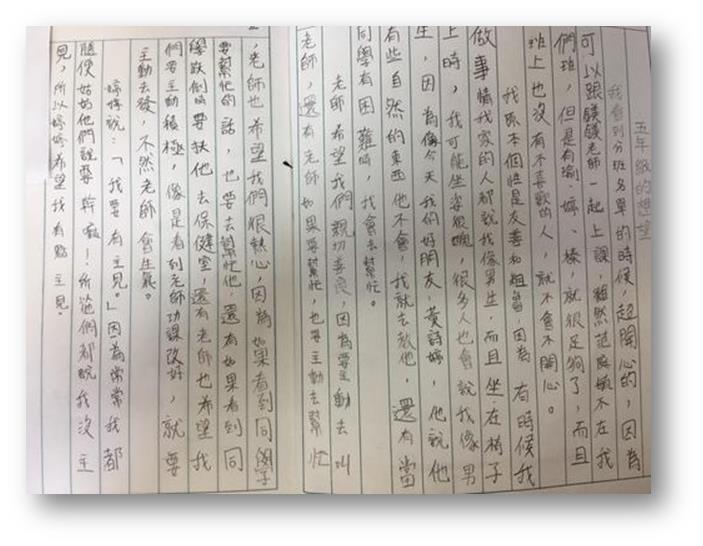 五年級的想望
我看到分班名單的時候，超開心的，因為
可以跟饃饃老師一起上課，雖然范庭毓不在我
們班，但是有瑜、婷、榛，就很足夠了，而且
班上也沒有不喜歡的人，就不會不開心。
我原本個性是友善和粗魯，因為有時候我
做事情我家的人都說我像男生，而且坐在椅子
上時，我可能坐姿很醜，很多人也會說我像男
生，因為像今天我的好朋友，黃詩婷，他說他
有些自然的東西他不會，我就去教他，還有當
同學有困難時，我會去幫忙。
老師希望我們親切善良，因為要主動去叫
老師，還有老師如果要幫忙，也要主動去幫忙
，老師也希望我們很熱心，因為如果看到同學
要幫忙的話，也要去幫忙他，還有如果看到同
學跌倒時要扶他去保健室，還有老師也希望我
們要主動積極，像是看到老師功課改好，就要
主動去發，不然老師會生氣。
婷婷說：「我要有主見。」因為常常我都
隨便姑姑他們說要幹嘛！所以他們都說我沒主
見，所以婷婷希望我有點主見。